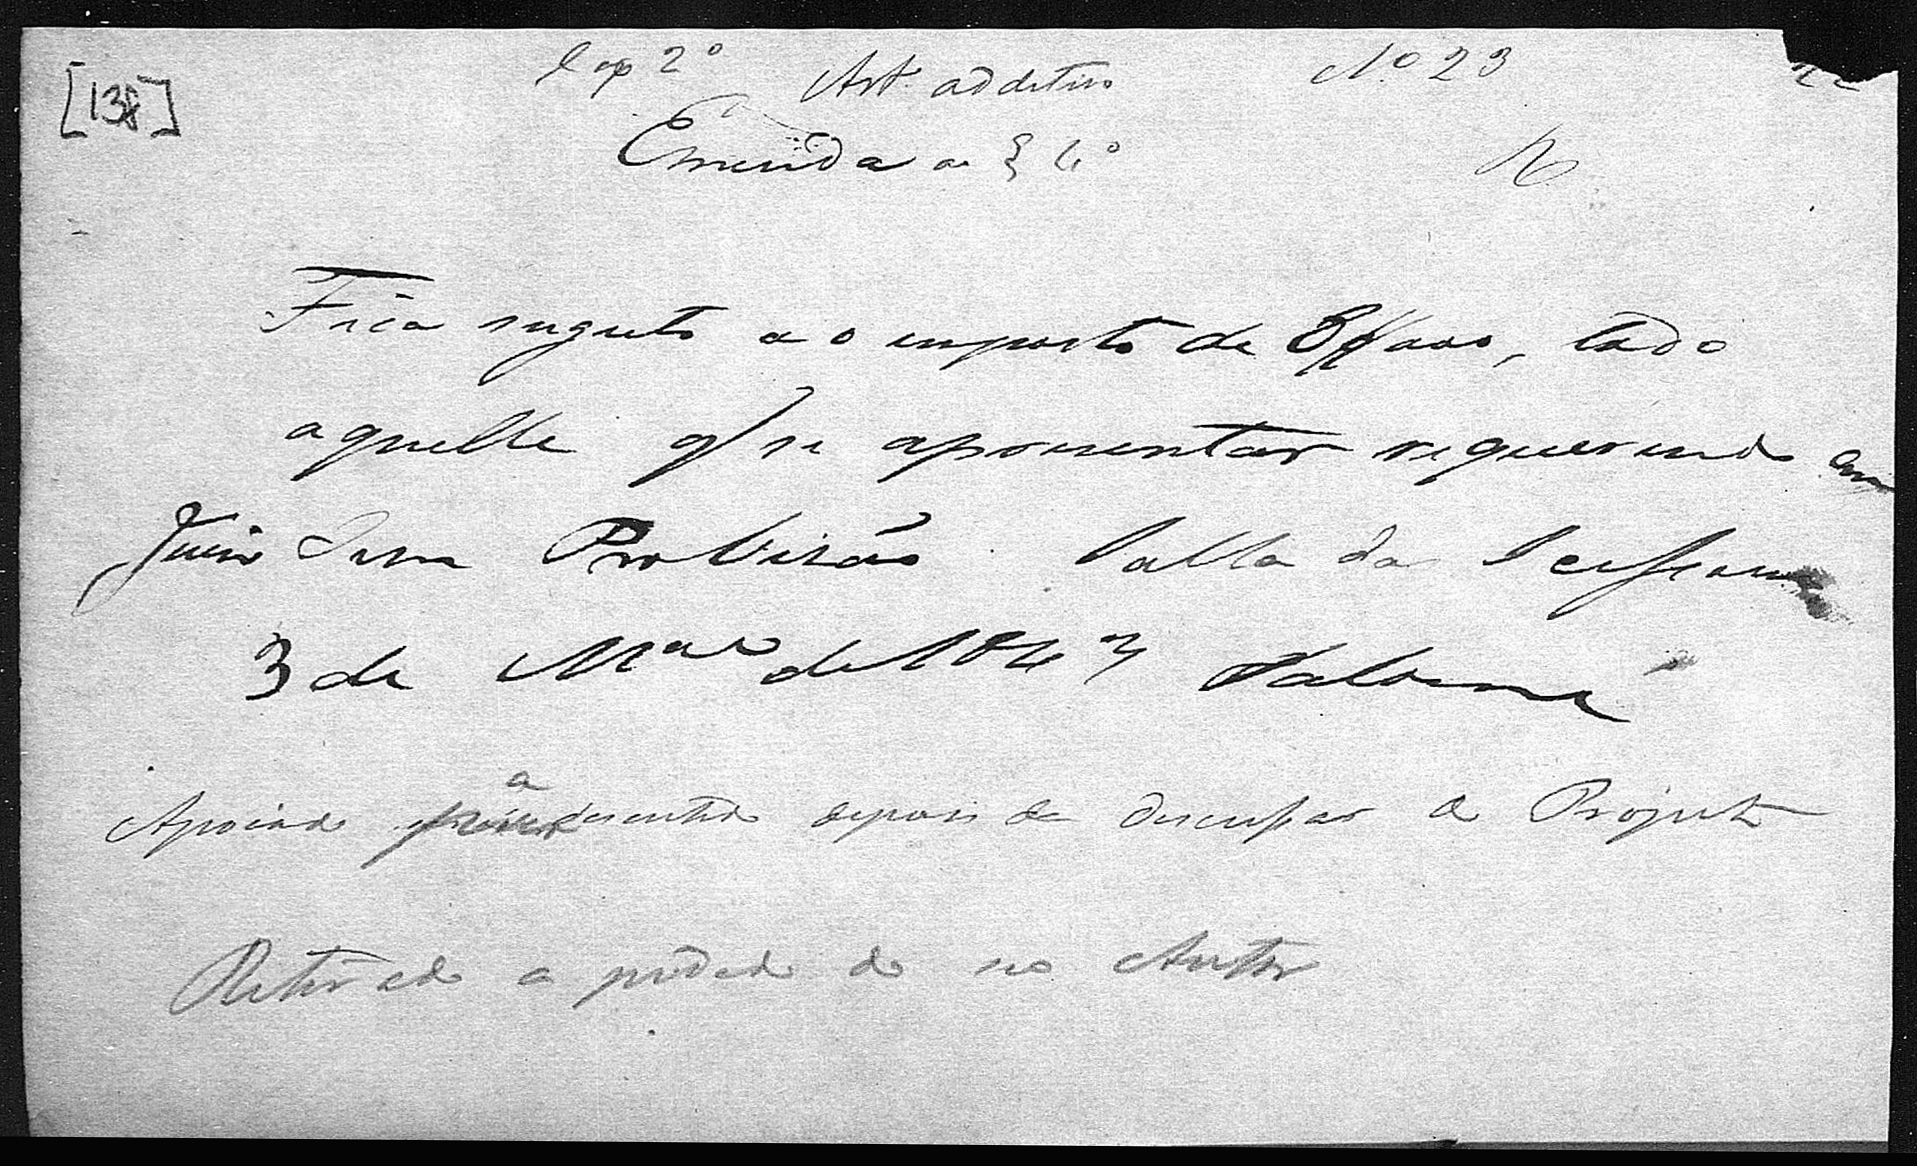 [138]
Cap 2º Art additivo Nº 23
Emenda ao § 4º
R
Fica sugeito ao imposto de 8$000, todo
aquelle q/ se aprezentar requerendo em
Juizo Sem Provizão. Salla da Sessão
3 de Mço de 1843 Dalbuna
Apoiada pa a discutida depois da discussão do Projecto
Retirada a pedido do seo Author